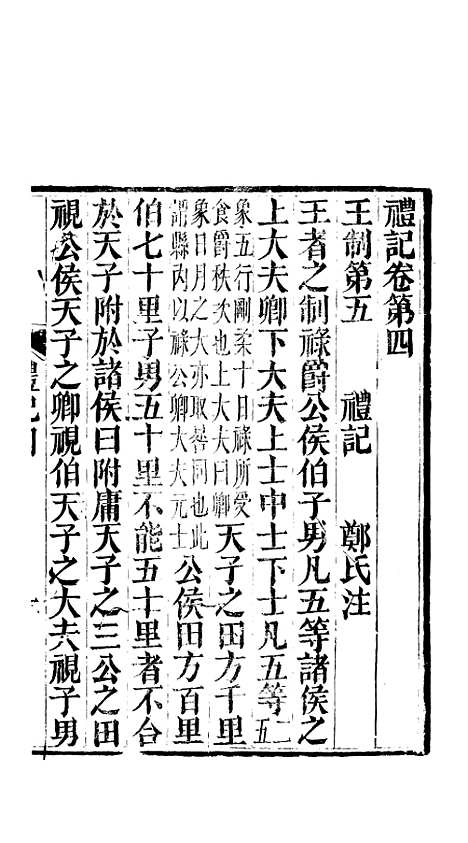 禮記卷第四
王制第五 禮記 鄭氏注
王者之制祿爵公侯伯子男凡五等諸侯之
上大夫卿下大夫上士中士下士凡五等二五
象五行剛柔十日祿所受
食爵秩次也上大夫曰卿
天子之田方千里
象日月之大亦取晷同也此
謂縣内以祿公卿大夫元士
公侯田方百里
伯七十里子男五十里不能五十里者不合
於天子附於諸侯曰附庸天子之三公之田
視公侯天子之卿視伯天子之大夫視子男